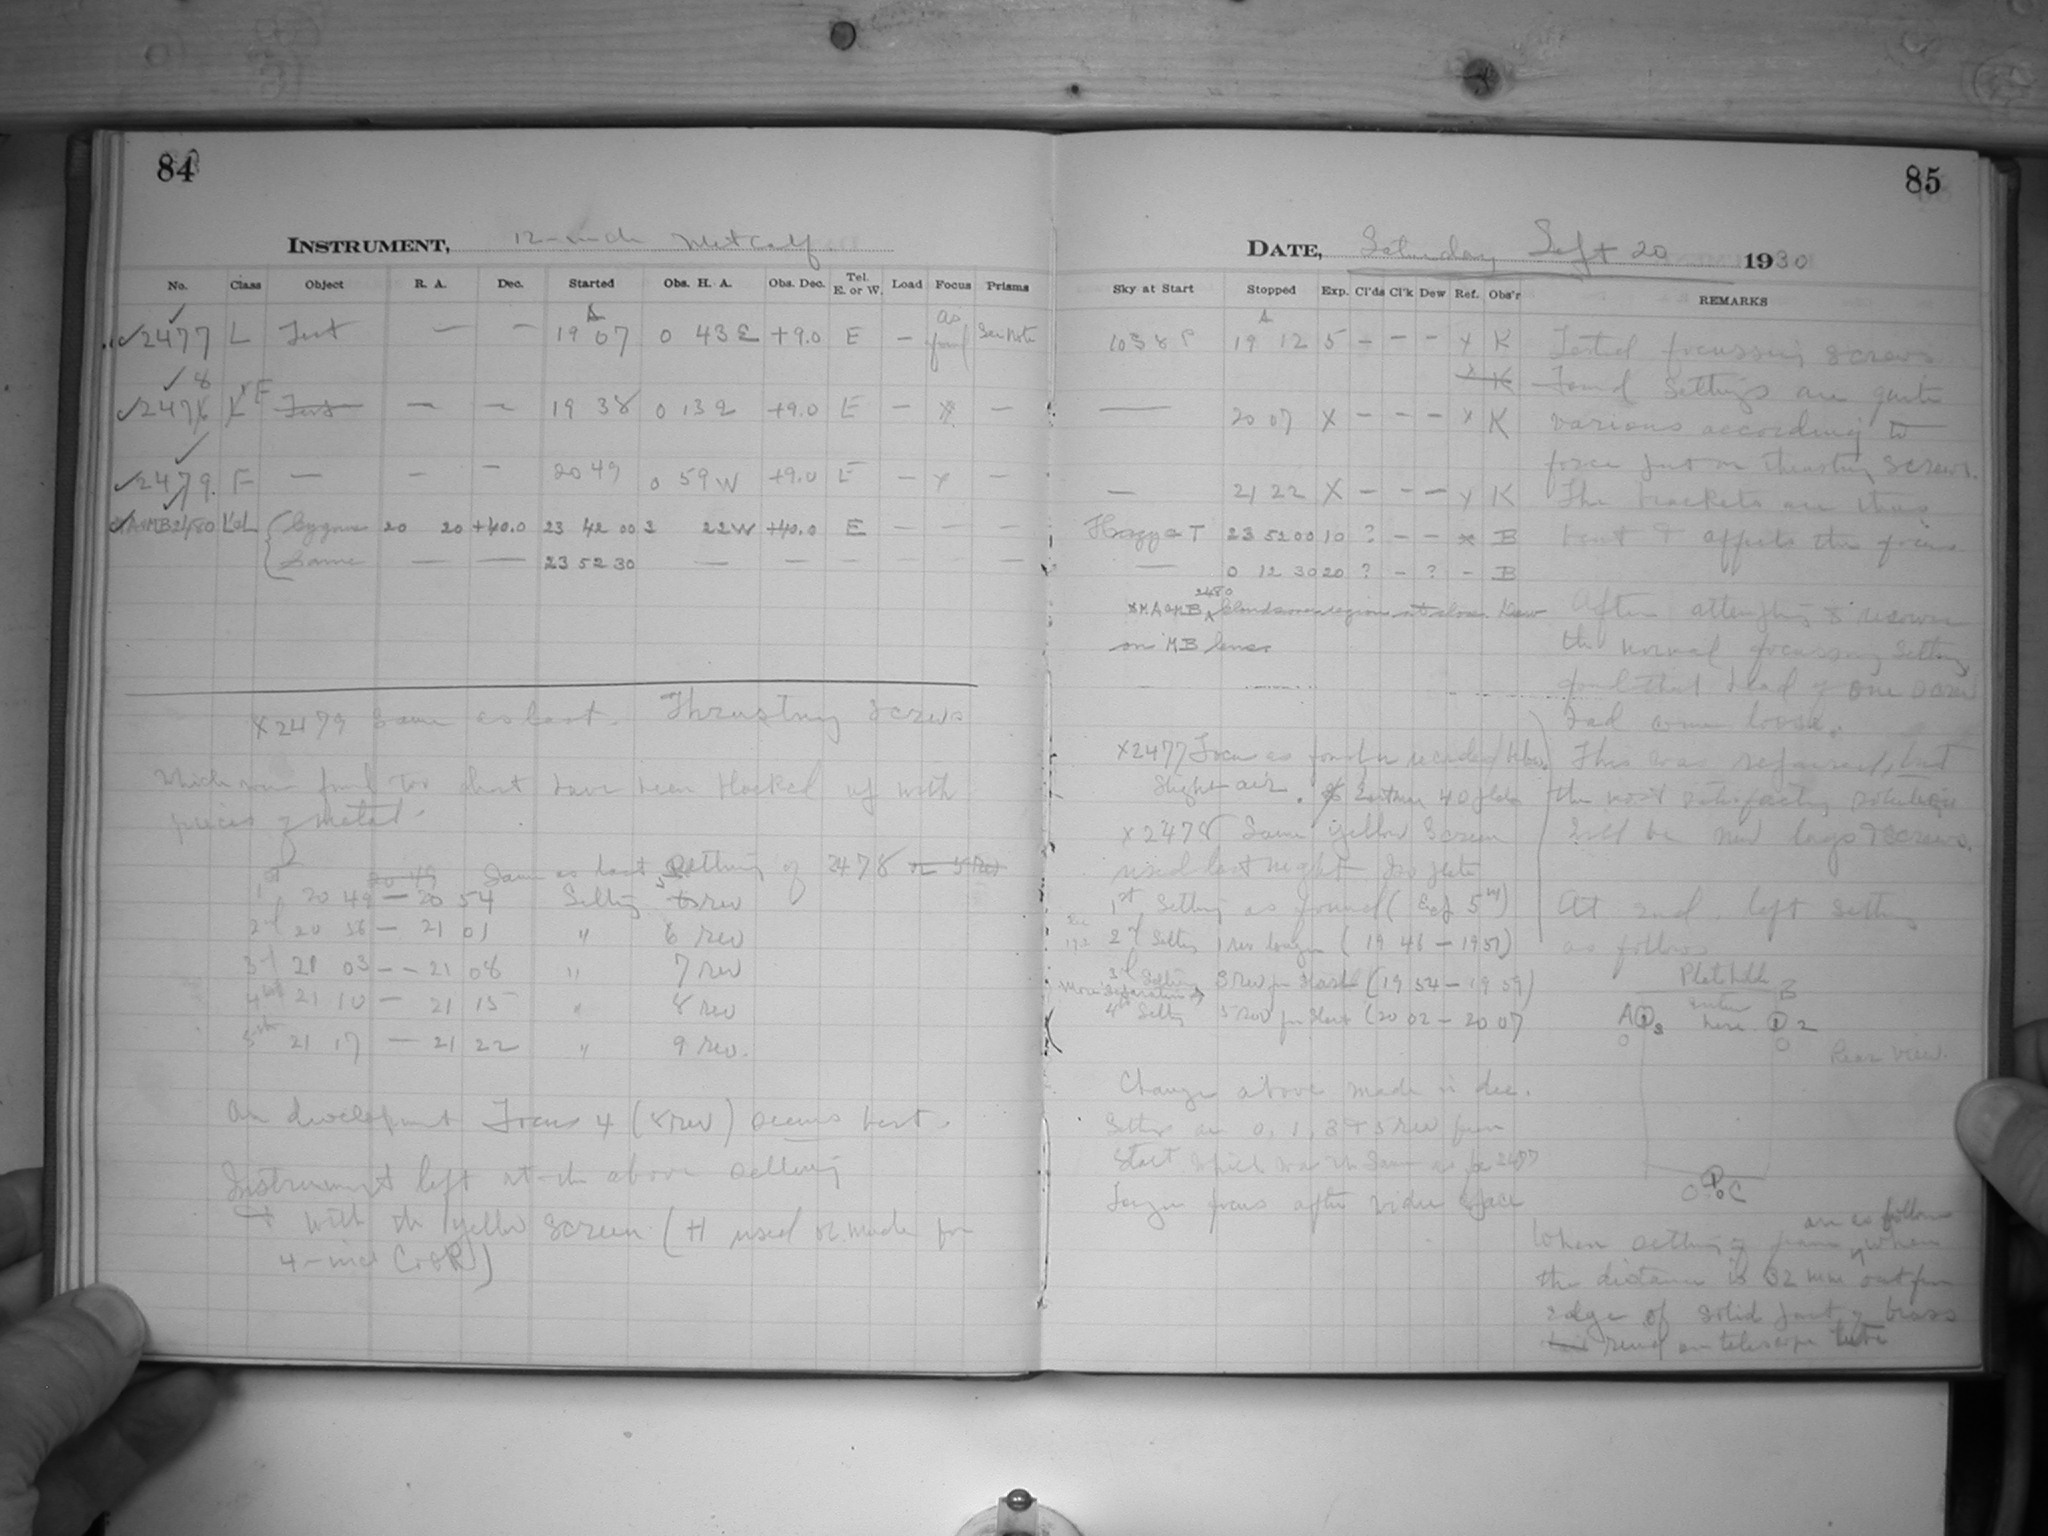 84
INSTRUMENT, 12-inch Metcalf
No. Class Object R. A. Dec. Started Obs. H. A. Obs. Dec. Tel. E. or W. Load Focus Prisms
2477 L Test — — 19 07 0 43 E +9.0 E — as found See Note
2478 F Test — — 19 38 0 13 E +9.0 E — x —
2479 F — — — 20 49 0 59 W +9.0 E — x —
MA&MB2480 L&L Cygnus 20 20 +40.0 23 42 00 3 22 W +40.0 E — — —
Same — — 23 52 30 — — — — — —
x2479 Same as last. Thrusting screws
which were found too short have been blocked up with
pieces of metal.
20 49 Same as last setting of 2478 or 5 rev
1st 20 49 — 20 54 Setting 5 rev
2nd 20 56 — 21 01 " 6 rev
3d 21 03 — 21 08 " 7 rev
4th 21 10 — 21 15 " 8 rev
5th 21 17 — 21 22 " 9 rev.
On development Focus 4 (8 rev) seems best.
Instrument left at the above setting
+ with the yellow screen (H used or made for
4-inch Cooke)
85
DATE, Saturday Sept 20 1930
Sky at Start Stopped Exp. Cl'ds Cl'k Dew Ref. Obs'r REMARKS
19 12 5 — — — x K Tested focussing screws
x K Found settings are quite
— 20 07 X — — — x K various according to
force put on thrusting screws.
— 21 22 X — — — x K The brackets are thus
Hazy & T 23 52 00 10 ? — — x B bent & affects the focus
— 0 12 30 20 ? — ? — B
xMA&MB 2480 Clouds over region at close. Dew
on MB lens.
After attempting to recover
the normal focussing setting
found that head of one screw
had come loose.
This was repaired, but
the most satisfactory solution
will be new lugs & screws.
x2477 Focus as found
Slight air.
x2478 Same yellow screen
used last night
1st Setting as found (Exp 5m)
2d Setting 1 rev longer (19 46 — 19 51)
3d Setting 3 rev fr Start (19 54 — 19 59)
4th Setting 5 rev fr Start (20 02 — 20 07
Change above made in dec.
Settings are 0, 1, 3 & 5 rev from
Start which was the same as for 2477
Longer focus after wider space
At end, left setting
as follows
Plateholder
enters
here
A B
2
Rear view.
C
When setting are as follows when
the distance is 32 mm out from
edge of solid part of brass
on telescope tube